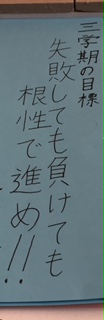 三学期の目標
失敗しても負けても
根性で進め!!